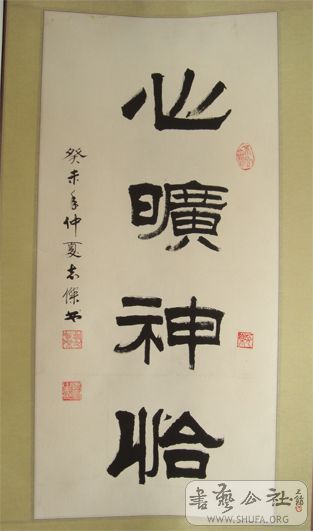 心曠神怡
癸未年仲夏志傑书
書藝公社
WWW.SHUFA.ORG